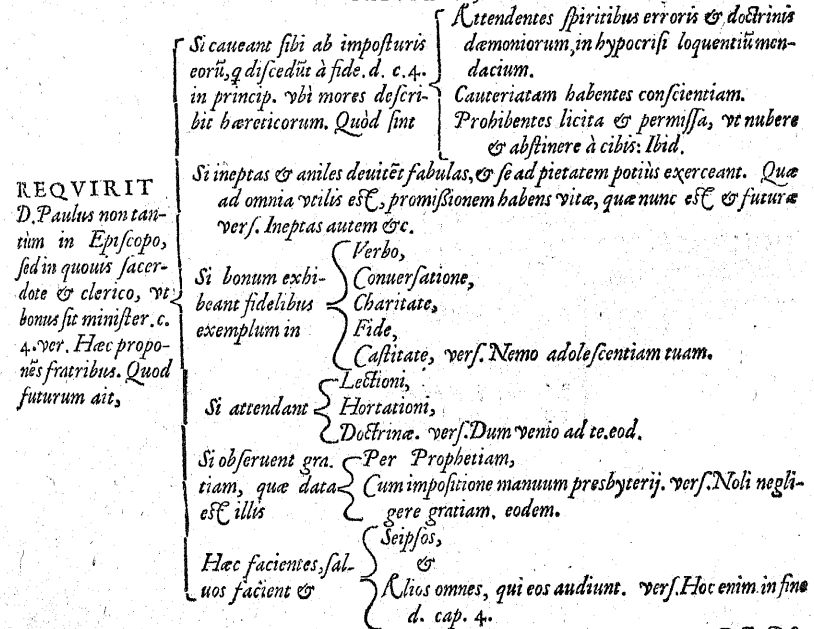 REQVIRIT
D. Paulus non tan-
tùm in Episcopo,
sed in quouis sacer-
dote & clerico, vt
bonus sit minister. c.
4. ver. Hæc propo-
nẽs fratribus. Quod
futurum ait,
Si caueant sibi ab imposturis
eorũ, q discedũt à fide. d. c. 4.
in princip. vbi mores descri-
bit hæreticorum. Quòd sint
Attendentes spiritibus erroris & doctrinis
dæmoniorum, in hypocrisi loquentiũ men-
dacium.
Cauteriatam habentes conscientiam.
Prohibentes licita & permissa, vt nubere
& abstinere à cibis: Ibid.
Si ineptas & aniles deuitẽt fabulas, & se ad pietatem potiùs exerceant. Quæ
ad omnia vtilis est, promissionem habens vitæ, quæ nunc est & futuræ
vers. Ineptas autem &c.
Si bonum exhi-
beant fidelibus
exemplum in
Verbo,
Conuersatione,
Charitate,
Fide,
Castitate, vers. Nemo adolescentiam tuam.
Si attendant
Lectioni,
Hortationi,
Doctrinæ. vers. Dum venio ad te. eod.
Si obseruent gra.
tiam, quæ data
est illis
Per Prophetiam,
Cum impositione manuum presbyterij. vers. Noli negli-
gere gratiam. eodem.
Hæc facientes, sal-
uos facient &
Seipsos,
&
Alios omnes, qui eos audiunt. vers. Hoc enim. in fine
d. cap. 4.